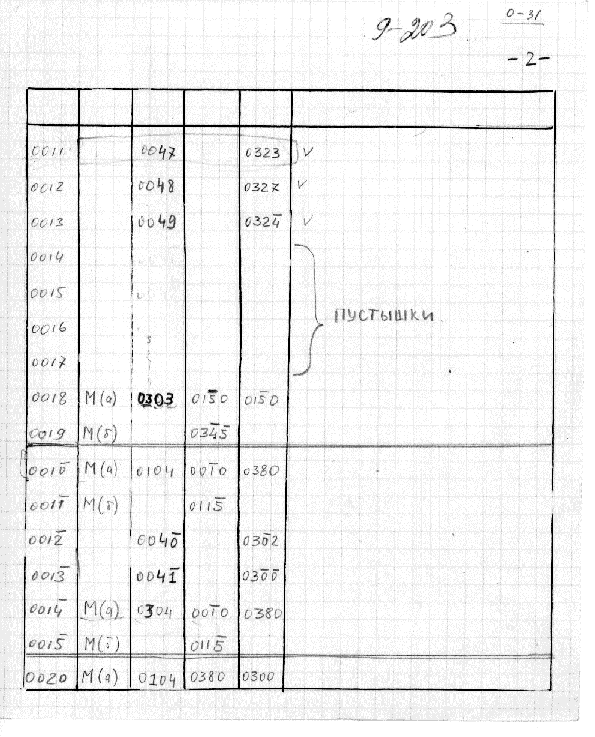 9-203
0-31
-2-
0011 0047 0323 V
0012 0048 0327 V
0013 0049 0324̅ V
0014
0015
0016
0017
ПУСТЫШКИ
0018 М(а) 0303 015̅0 015̅0
0019 М(б) 034̅5̅
0010̅ М(а) 0104 001̅0 0380
0011̅ М(б) 0115̅
0012̅ 0040̅ 030̅2
0013̅ 0041̅ 030̅0̅
0014̅ М(а) 0304 001̅0 0380
0015̅ М(б) 0115̅
0020 М(а) 0104 0380 0300